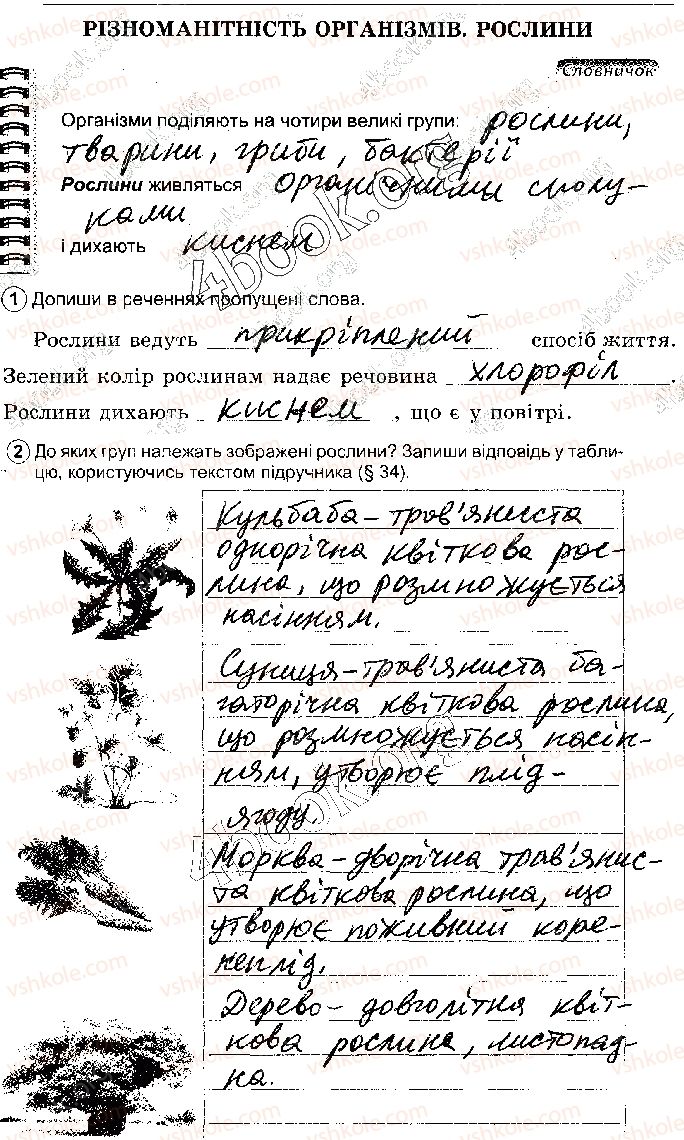 РІЗНОМАНІТНІСТЬ ОРГАНІЗМІВ. РОСЛИНИ
Словничок
Організми поділяють на чотири великі групи: рослини,
тварини, гриби, бактерії
Рослини живляться органічними сполу-
ками
і дихають киснем
1 Допиши в реченнях пропущені слова.
Рослини ведуть прикріплений спосіб життя.
Зелений колір рослинам надає речовина хлорофіл.
Рослини дихають киснем, що є у повітрі.
2 До яких груп належать зображені рослини? Запиши відповідь у табли-
цю, користуючись текстом підручника (§ 34).
Кульбаба – трав'яниста
однорічна квіткова рос-
лина, що розмножується
насінням.
Суниця – трав'яниста ба-
гаторічна квіткова рослина,
що розмножується насін-
ням, утворює плід -
ягоду.
Морква – дворічна трав'янис-
та квіткова рослина, що
утворює поживний коре-
неплід.
Дерево – довголітня квіт-
кова рослина, листопад-
на.
4book.org
vshkole.com